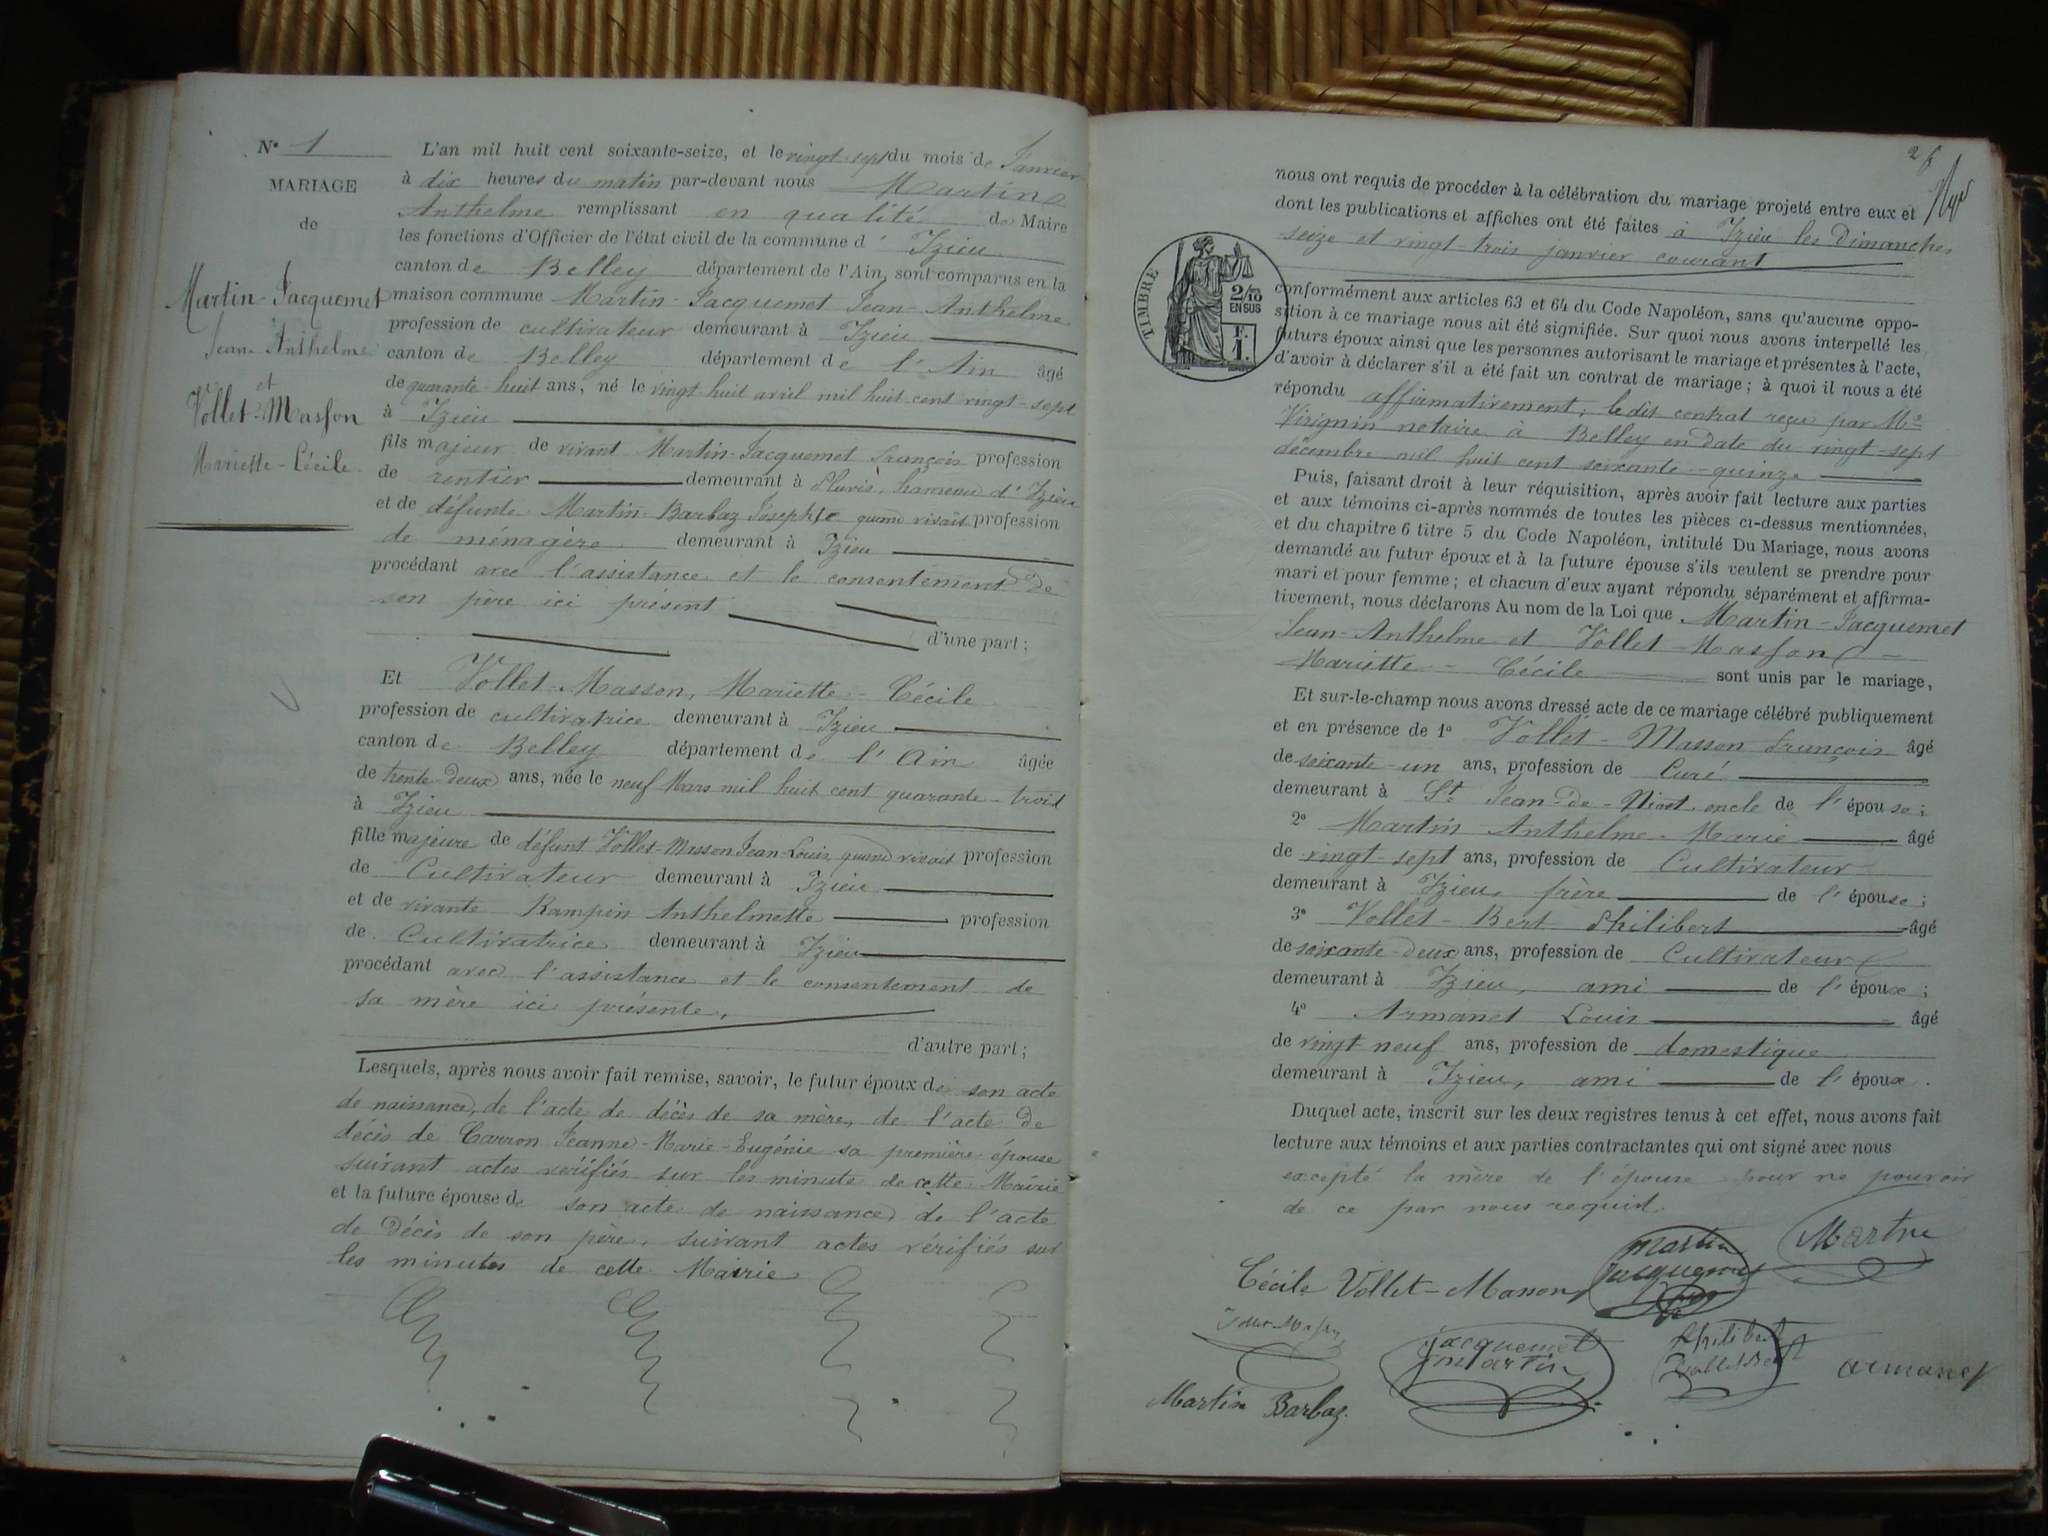 N° 1
MARIAGE
de
Martin-Jacquemet
Jean-Anthelme
et
Vollet-Masson
Mariette-Cécile
L'an mil huit cent soixante-seize, et le vingt-sept du mois de Janvier
à dix heures du matin par-devant nous Martin
Anthelme remplissant en qualité de Maire
les fonctions d'Officier de l'état civil de la commune d' Izieu
canton de Belley département de l'Ain, sont comparus en la
maison commune Martin-Jacquemet Jean-Anthelme
profession de cultivateur demeurant à Izieu
canton de Belley département de l'Ain âgé
de quarante-huit ans, né le vingt huit avril mil huit cent vingt-sept
à Izieu
fils majeur de vivant Martin-Jacquemet François profession
de rentier demeurant à Pluvis, hameau d'Izieu
et de défunte Martin-Barbaz Josephte quand vivait profession
de ménagère demeurant à Izieu
procédant avec l'assistance et le consentement de
son père ici présent
d'une part ;
Et Vollet-Masson, Mariette-Cécile
profession de cultivatrice demeurant à Izieu
canton de Belley département de l'Ain âgée
de trente-deux ans, née le neuf Mars mil huit cent quarante-trois
à Izieu
fille majeure de défunt Vollet-Masson Jean-Louis quand vivait profession
de Cultivateur demeurant à Izieu
et de vivante Rampin Anthelmette profession
de Cultivatrice demeurant à Izieu
procédant avec l'assistance et le consentement de
sa mère ici présente,
d'autre part ;
Lesquels, après nous avoir fait remise, savoir, le futur époux de son acte
de naissance, de l'acte de décès de sa mère, de l'acte de
décès de Carron Jeanne-Marie-Eugénie sa première épouse
suivant actes vérifiés sur les minute de cette Mairie
et la future épouse de son acte de naissance, de l'acte
de décès de son père, suivant actes vérifiés sur
les minutes de cette Mairie
nous ont requis de procéder à la célébration du mariage projeté entre eux et
dont les publications et affiches ont été faites à Izieu les Dimanches
seize et vingt-trois janvier courant
TIMBRE
2/10
EN SUS
F.
1.
conformément aux articles 63 et 64 du Code Napoléon, sans qu'aucune oppo-
sition à ce mariage nous ait été signifiée. Sur quoi nous avons interpellé les
futurs époux ainsi que les personnes autorisant le mariage et présentes à l'acte,
d'avoir à déclarer s'il a été fait un contrat de mariage ; à quoi il nous a été
répondu affirmativement, ledit contrat reçu par Me
Virignin notaire à Belley en date du vingt-sept
décembre mil huit cent soixante-quinze
Puis, faisant droit à leur réquisition, après avoir fait lecture aux parties
et aux témoins ci-après nommés de toutes les pièces ci-dessus mentionnées,
et du chapitre 6 titre 5 du Code Napoléon, intitulé Du Mariage, nous avons
demandé au futur époux et à la future épouse s'ils veulent se prendre pour
mari et pour femme ; et chacun d'eux ayant répondu séparément et affirma-
tivement, nous déclarons Au nom de la Loi que Martin-Jacquemet
Jean-Anthelme et Vollet-Masson
Mariette-Cécile sont unis par le mariage,
Et sur-le-champ nous avons dressé acte de ce mariage célébré publiquement
et en présence de 1° Vollet-Masson François âgé
de soixante-un ans, profession de Curé
demeurant à St Jean-de-Niost, oncle de l'épouse ;
2° Martin Anthelme-Marie âgé
de vingt-sept ans, profession de Cultivateur
demeurant à Izieu, frère de l'épouse ;
3° Vollet-Bert Philibert âgé
de soixante-deux ans, profession de Cultivateur
demeurant à Izieu, ami de l'époux ;
4° Armanet Louis âgé
de vingt neuf ans, profession de domestique
demeurant à Izieu, ami de l'époux.
Duquel acte, inscrit sur les deux registres tenus à cet effet, nous avons fait
lecture aux témoins et aux parties contractantes qui ont signé avec nous
excepté la mère de l'épouse pour ne pouvoir
de ce par nous requise.
Cécile Vollet-Masson
Martin
Jacquemet
Martin
Vollet-Masson
jacquemet
martin
Philibert
Vollet Bert
armanet
Martin Barbaz.